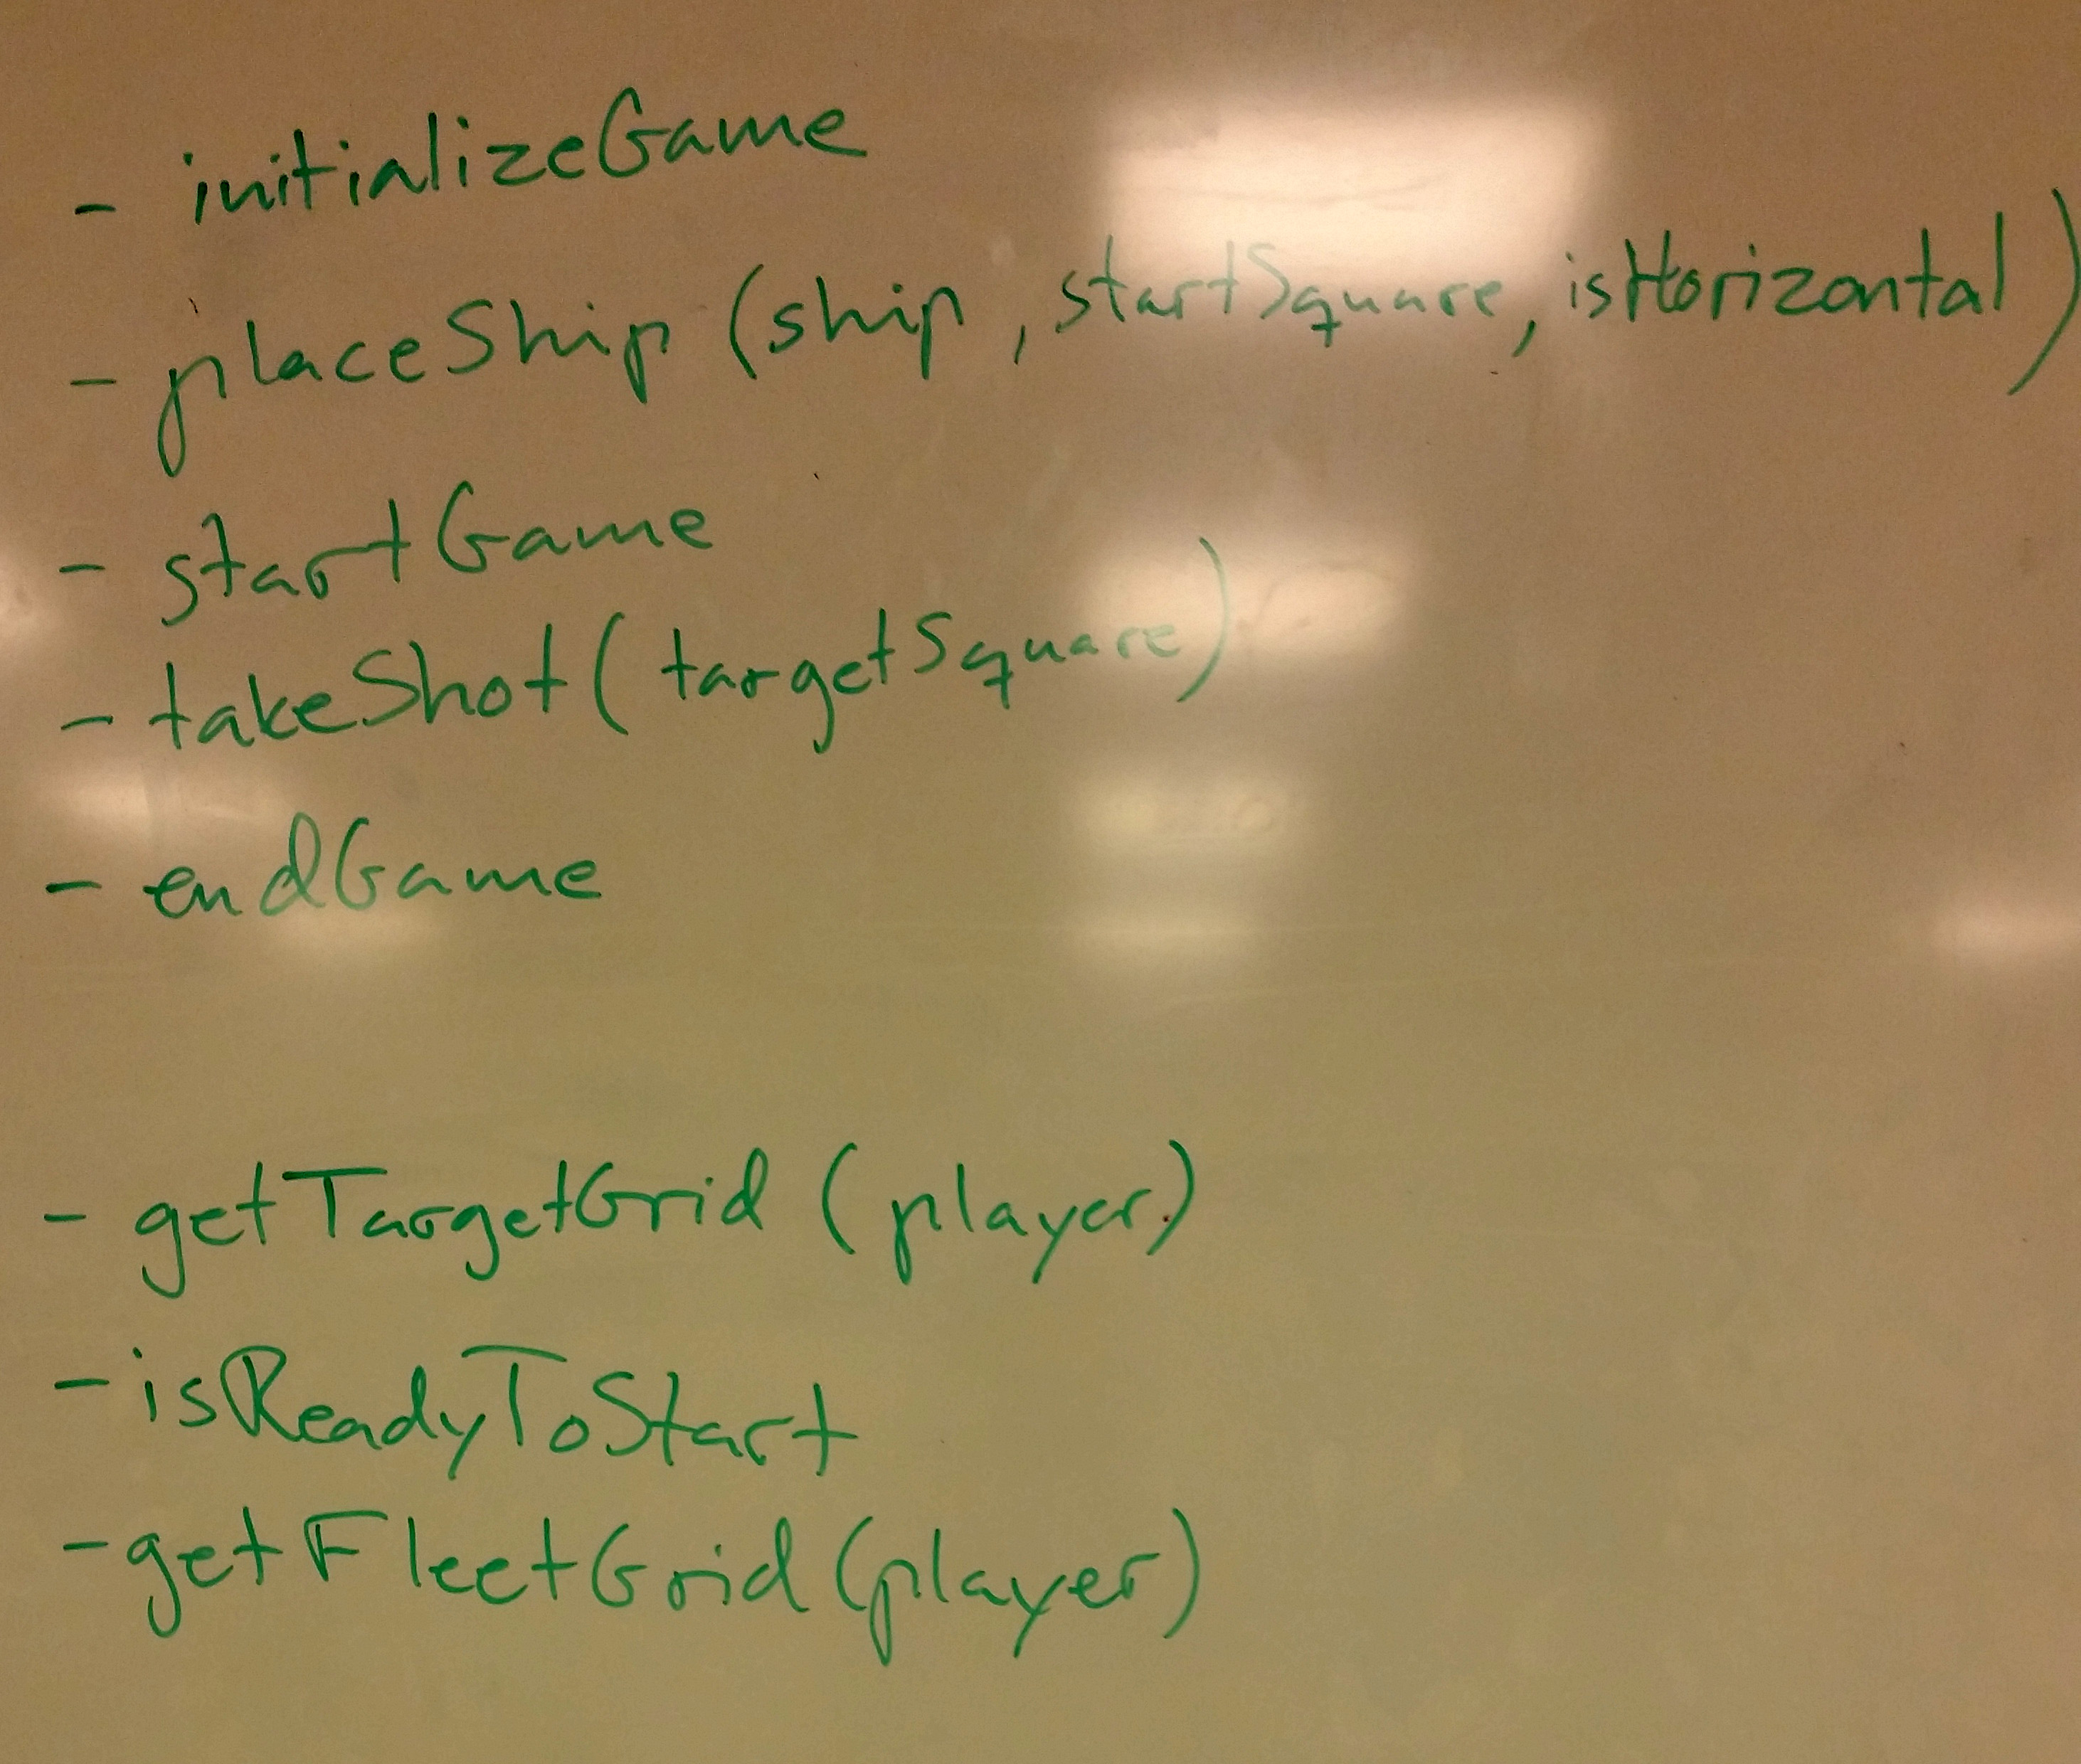 - initializeGame
- placeShip (ship, startSquare, isHorizontal)
- startGame
- takeShot (targetSquare)
- endGame
- getTargetGrid (player)
- isReadyToStart
- getFleetGrid (player)